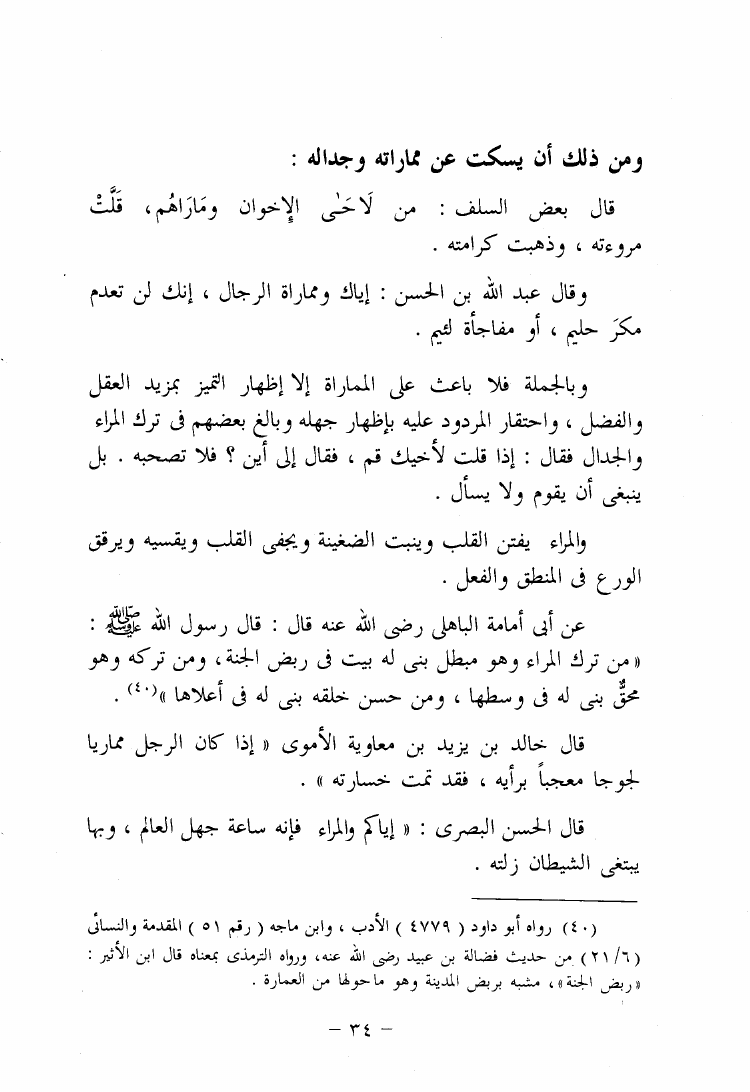 ومن ذلك أن يسكت عن مماراته وجداله :
قال بعض السلف : من لَاحَىٰ الإِخوان ومَارَاهُم، قَلَّتْ
مروءته ، وذهبت كرامته .
وقال عبد الله بن الحسن : إياك ومماراة الرجال ، إنك لن تعدم
مكرَ حليم ، أو مفاجأة لئيم .
وبالجملة فلا باعث على المماراة إلا إظهار التميز بمزيد العقل
والفضل ، واحتقار المردود عليه بإظهار جهله وبالغ بعضهم فى ترك المراء
والجدال فقال : إذا قلت لأخيك قم ، فقال إلى أين ؟ فلا تصحبه . بل
ينبغى أن يقوم ولا يسأل .
والمراء يفتن القلب وينبت الضغينة ويجفى القلب ويقسيه ويرقق
الورع فى المنطق والفعل .
عن أبى أمامة الباهلى رضى الله عنه قال : قال رسول الله ﷺ :
« من ترك المراء وهو مبطل بنى له بيت فى ربض الجنة، ومن تركه وهو
محقٌّ بنى له فى وسطها ، ومن حسن خلقه بنى له فى أعلاها »(٤٠) .
قال خالد بن يزيد بن معاوية الأموى « إذا كان الرجل مماريا
لجوجا معجباً برأيه ، فقد تمت خسارته » .
قال الحسن البصرى : « إياكم والمراء فإنه ساعة جهل العالم ، وبها
يبتغى الشيطان زلته .
(٤٠) رواه أبو داود ( ٤٧٧٩ ) الأدب ، وابن ماجه ( رقم ٥١ ) المقدمة والنسائى
(٢١/٦) من حديث فضالة بن عبيد رضى الله عنه، ورواه الترمذى بمعناه قال ابن الأثير :
«ربض الجنة»، مشبه بربض المدينة وهو ماحولها من العمارة .
– ٣٤ –